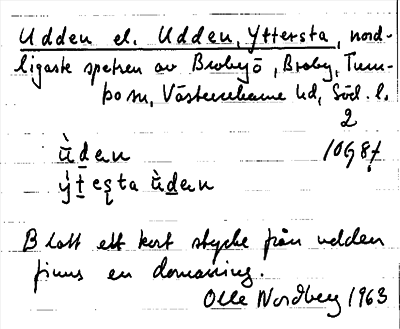 Udden el. Udden, Yttersta, nord-
ligaste spetsen av Brobyö, Broby, Trum-
bo sn, Västerrekarne hd, Söd. l.
2
ù̄dan 10G8f
ỳtesta ù̄dan
Blott ett kort stycke från udden
finns en domarring.
Olle Nordberg 1963